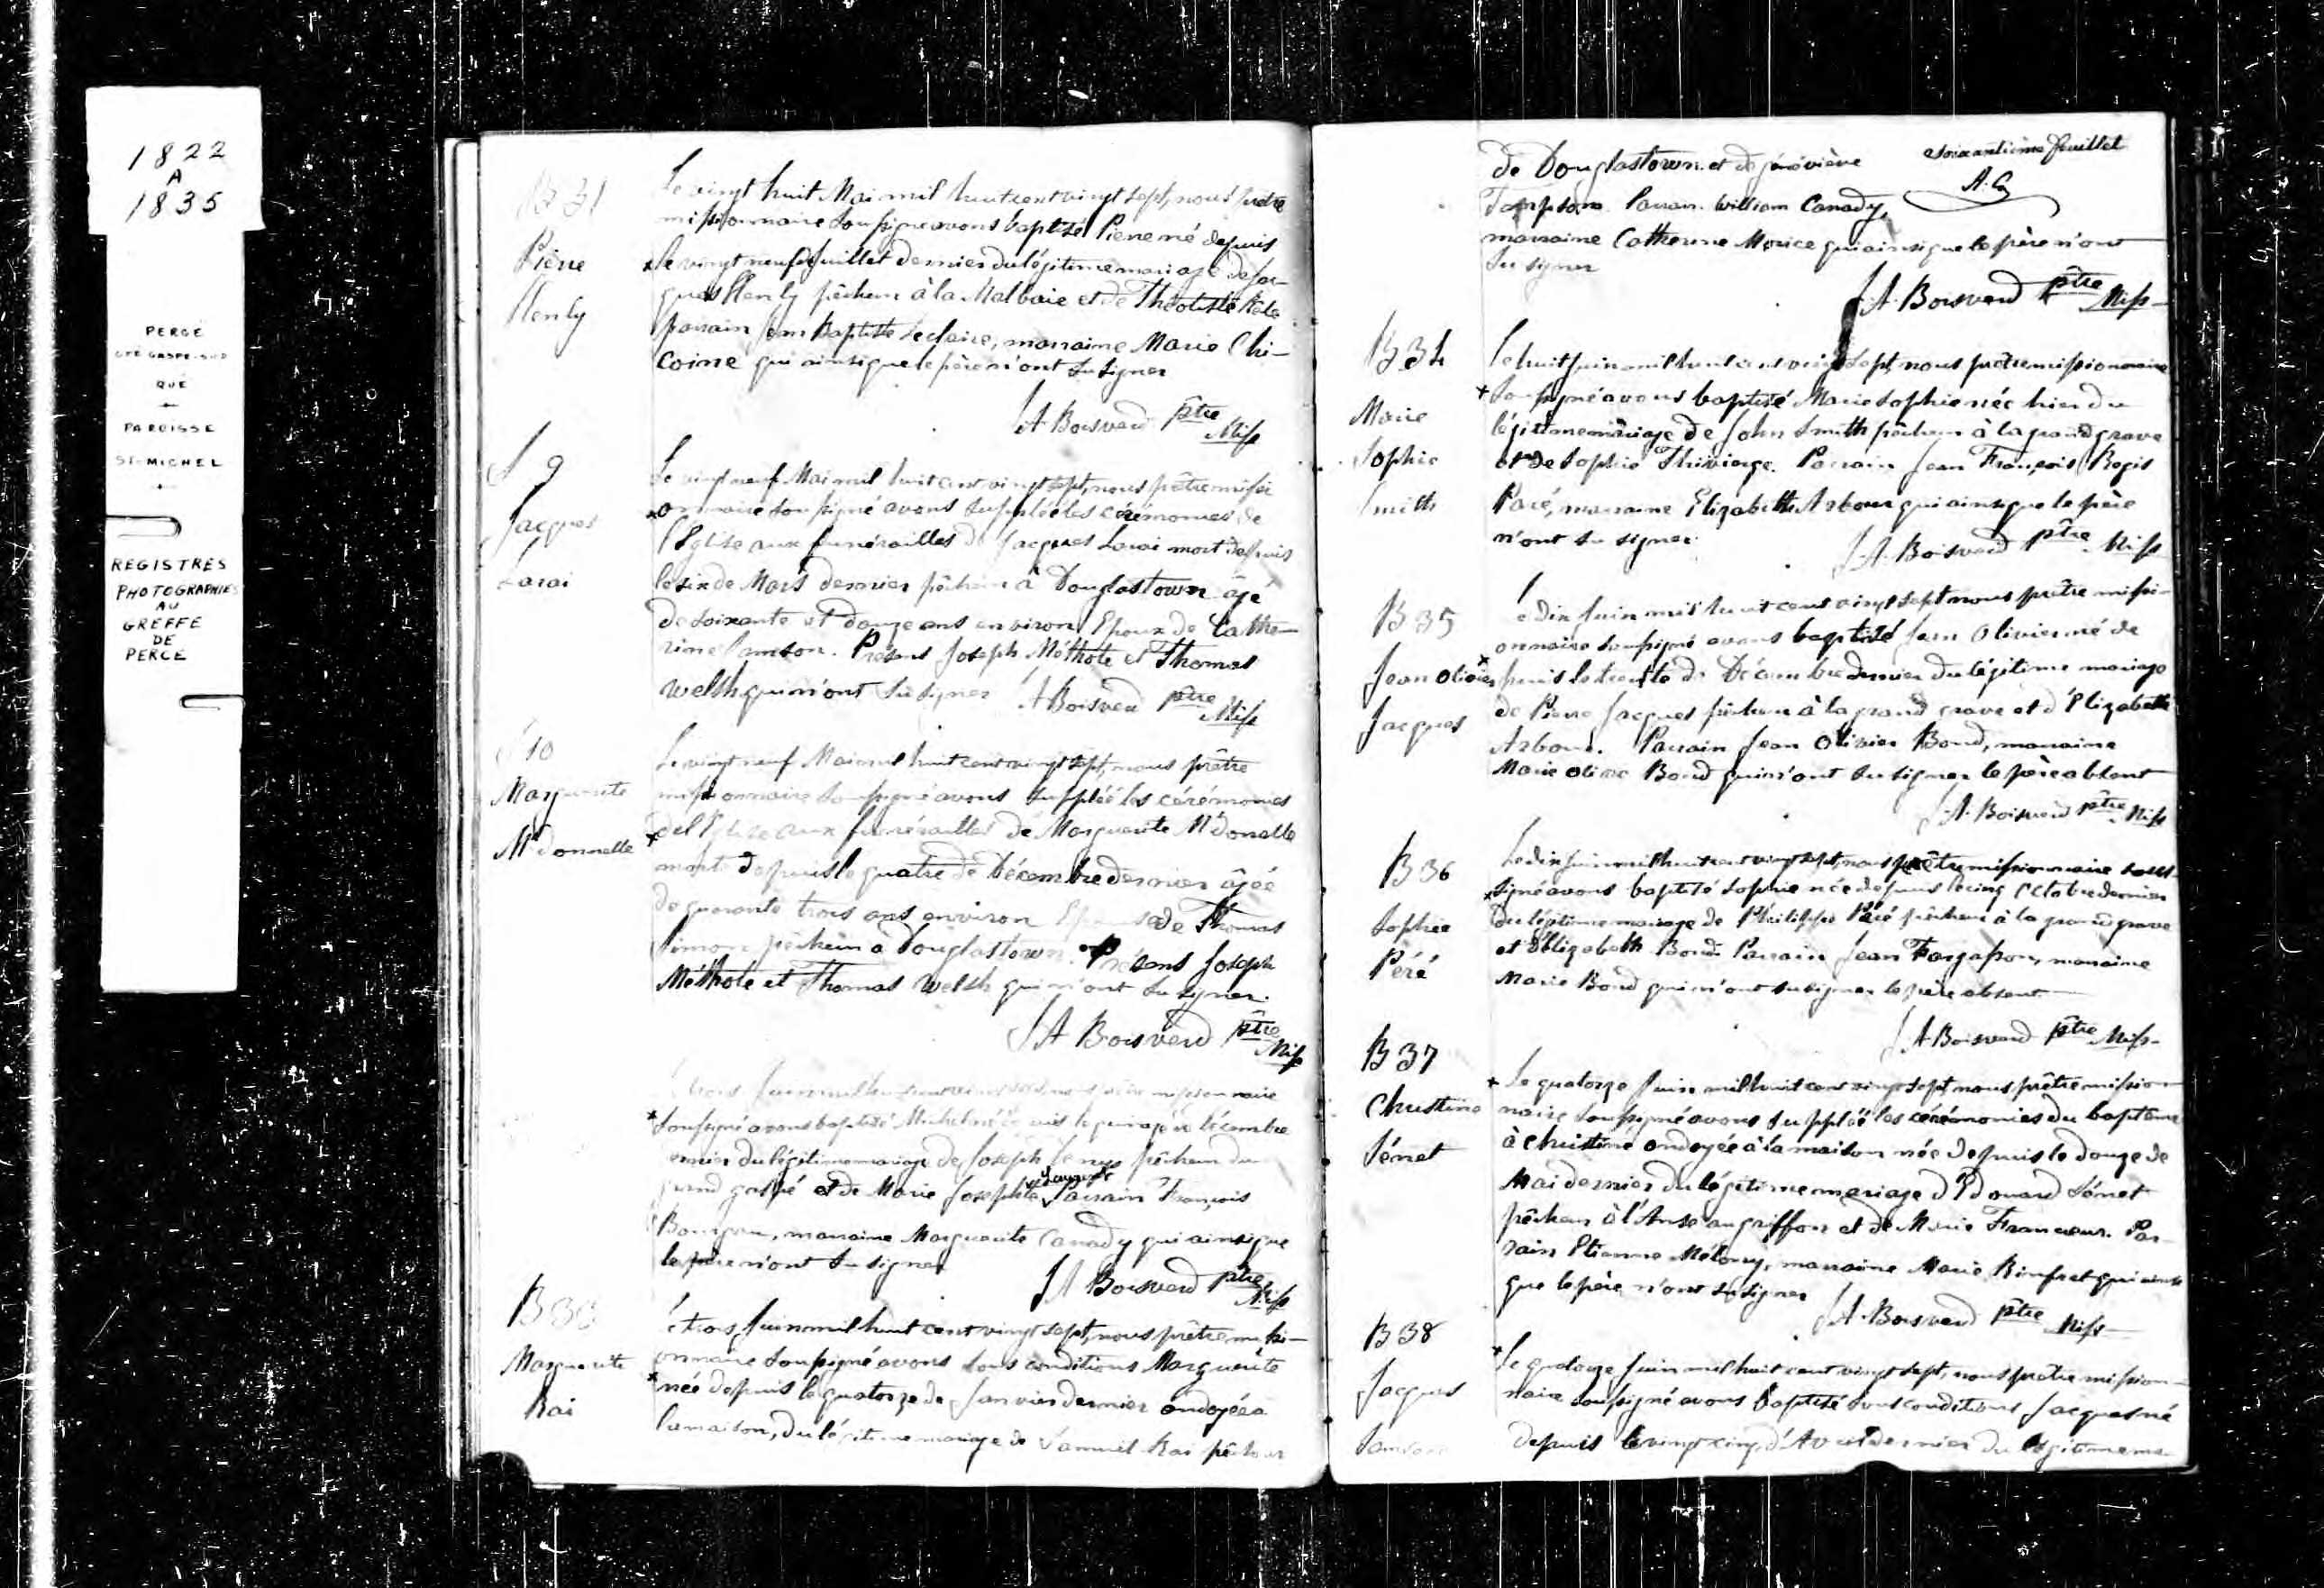 1822
A
1835
PERCÉ
CTÉ GASPÉ-SUD
QUÉ
PAROISSE
ST-MICHEL
REGISTRES
PHOTOGRAPHIES
AU
GREFFE
DE
PERCÉ
B 31
Pierre
Henly
Le vingt huit Mai mil huit cent vingt sept, nous prêtre
missionnaire soussigné avons baptisé Pierre né depuis
le vingt neuf Juillet dernier du légitime mariage de Jac-
ques Henly pêcheur à la Malbaie et de Théotiste
parrain Jean Baptiste Leclaire, marraine Marie Chi-
coine qui ainsi que le père n'ont su signer
J A Boisverd ptre
Miss
S 9
Jacques
Larai
Le vingt neuf Mai mil huit cent vingt sept, nous prêtre missi
onnaire soussigné avons suppléé les cérémonies de
l'Eglise aux funérailles de Jacques Larai mort depuis
le six de Mars dernier pêcheur à Douglastown âgé
de soixante et douze ans environ Epoux de Cathe-
rine Samson. Présens Joseph Méthote et Thomas
Welsh qui n'ont su signer J A Boisverd ptre
Miss
S 10
Marguerite
McDonnelle
Le vingt neuf Mai mil huit cent vingt sept, nous prêtre
missionnaire soussigné avons suppléé les cérémonies
de l'Eglise aux funérailles de Marguerite McDonelle
morte depuis le quatre de Décembre dernier âgée
de quarante trois ans environ Epouse de Thomas
Simon pêcheur à Douglastown. Présens Joseph
Méthote et Thomas Welsh qui n'ont su signer.
J A Boisverd ptre
Miss
trois Juin mil huit cent vingt sept, nous prêtre missionnaire
soussigné avons baptisé Michel né depuis le quinze de Décembre
dernier du légitime mariage de Joseph pêcheur du
grand gaspé et de Marie Josephte Parrain François
marraine Marguerite Canady qui ainsi que
le père n'ont su signer J A Boisverd ptre
Miss
B 33
Marguerite
Rai
Le trois Juin mil huit cent vingt sept, nous prêtre missi-
onnaire soussigné avons sous conditions Marguerite
née depuis le quatorze de Janvier dernier ondoyée a
la maison, du légitime mariage de Samuel Rai pêcheur
soixantième feuillet
A. G
de Douglastown. et de Géneviève
Samson. Parrain William Canady,
marraine Catherine Morice qui ainsi que le père n'ont
su signer
J. A. Boisverd ptre Miss-
B 34
Marie
Sophie
Smith
Le huit Juin mil huit cent vingt sept, nous prêtre missionnaire
soussigné avons baptisé Marie Sophie née hier du
légitime mariage de John Smith pêcheur à la grand grave
et de Sophie Thivierge. Parrain Jean François Regis
Paré, marraine Elizabeth Arbour qui ainsi que le père
n'ont su signer.
J. A. Boisverd ptre Miss
B 35
Jean Olivier
Jacques
Le dix Juin mil huit cent vingt sept nous prêtre missi-
onnaire soussigné avons baptisé Jean Olivier né de
puis le trente de Décembre dernier du légitime mariage
de Pierre Jacques pêcheur à la grand grave et d'Elizabeth
Arbour. Parrain Jean Olivier Bond, marraine
Marie Olive Bond qui n'ont su signer le père absent
J. A. Boisverd ptre Miss
B 36
Sophie
Péré
Le dix Juin mil huit cent vingt sept, nous prêtre missionnaire sous
signé avons baptisé Sophie née depuis le cinq Octobre dernier
du légitime mariage de Philippe Péré pêcheur à la grand grave
et d'Elizabeth Bond. Parrain Jean Fargasson, marraine
Marie Bond qui n'ont su signer le père absent
J. A. Boisverd ptre Miss-
B 37
Christine
Sénet
Le quatorze Juin mil huit cent vingt sept, nous prêtre mission-
naire soussigné avons suppléé les cérémonies du baptême
à Christine ondoyée à la maison née depuis le douze de
Mai dernier du légitime mariage d'Edouard Sénet
pêcheur à l'Anse au griffon et de Marie Francoeur. Par
rain Etienne Mélony, marraine Marie Rinfret qui ainsi
que le père n'ont su signer J. A. Boisverd ptre Miss-
B 38
Jacques
Samson
Le quatorze Juin mil huit cent vingt sept, nous prêtre mission-
naire soussigné avons baptisé sous conditions Jacques né
depuis le vingt cinq d'Avril dernier du légitime ma-